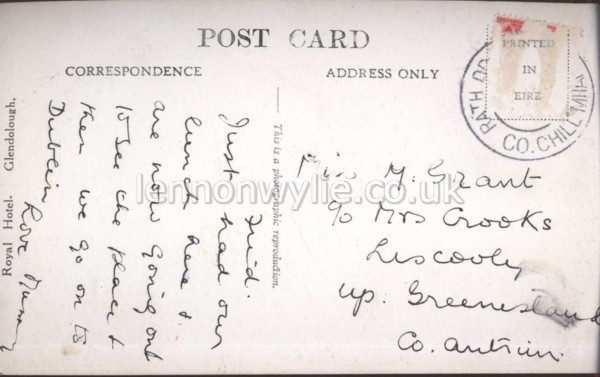 POST CARD
CORRESPONDENCE
ADDRESS ONLY
PRINTED
IN
EIRE
CO. CHILL
Royal Hotel. Glendolough,
This is a photographic reproduction.
Just had our
lunch here &
are now going out
to see the place &
then we go on to
Dublin
Love Mummy
M. Grant
c/o Mrs Crooks
up. Greenisland
Co. Antrim.
lennonwylie.co.uk